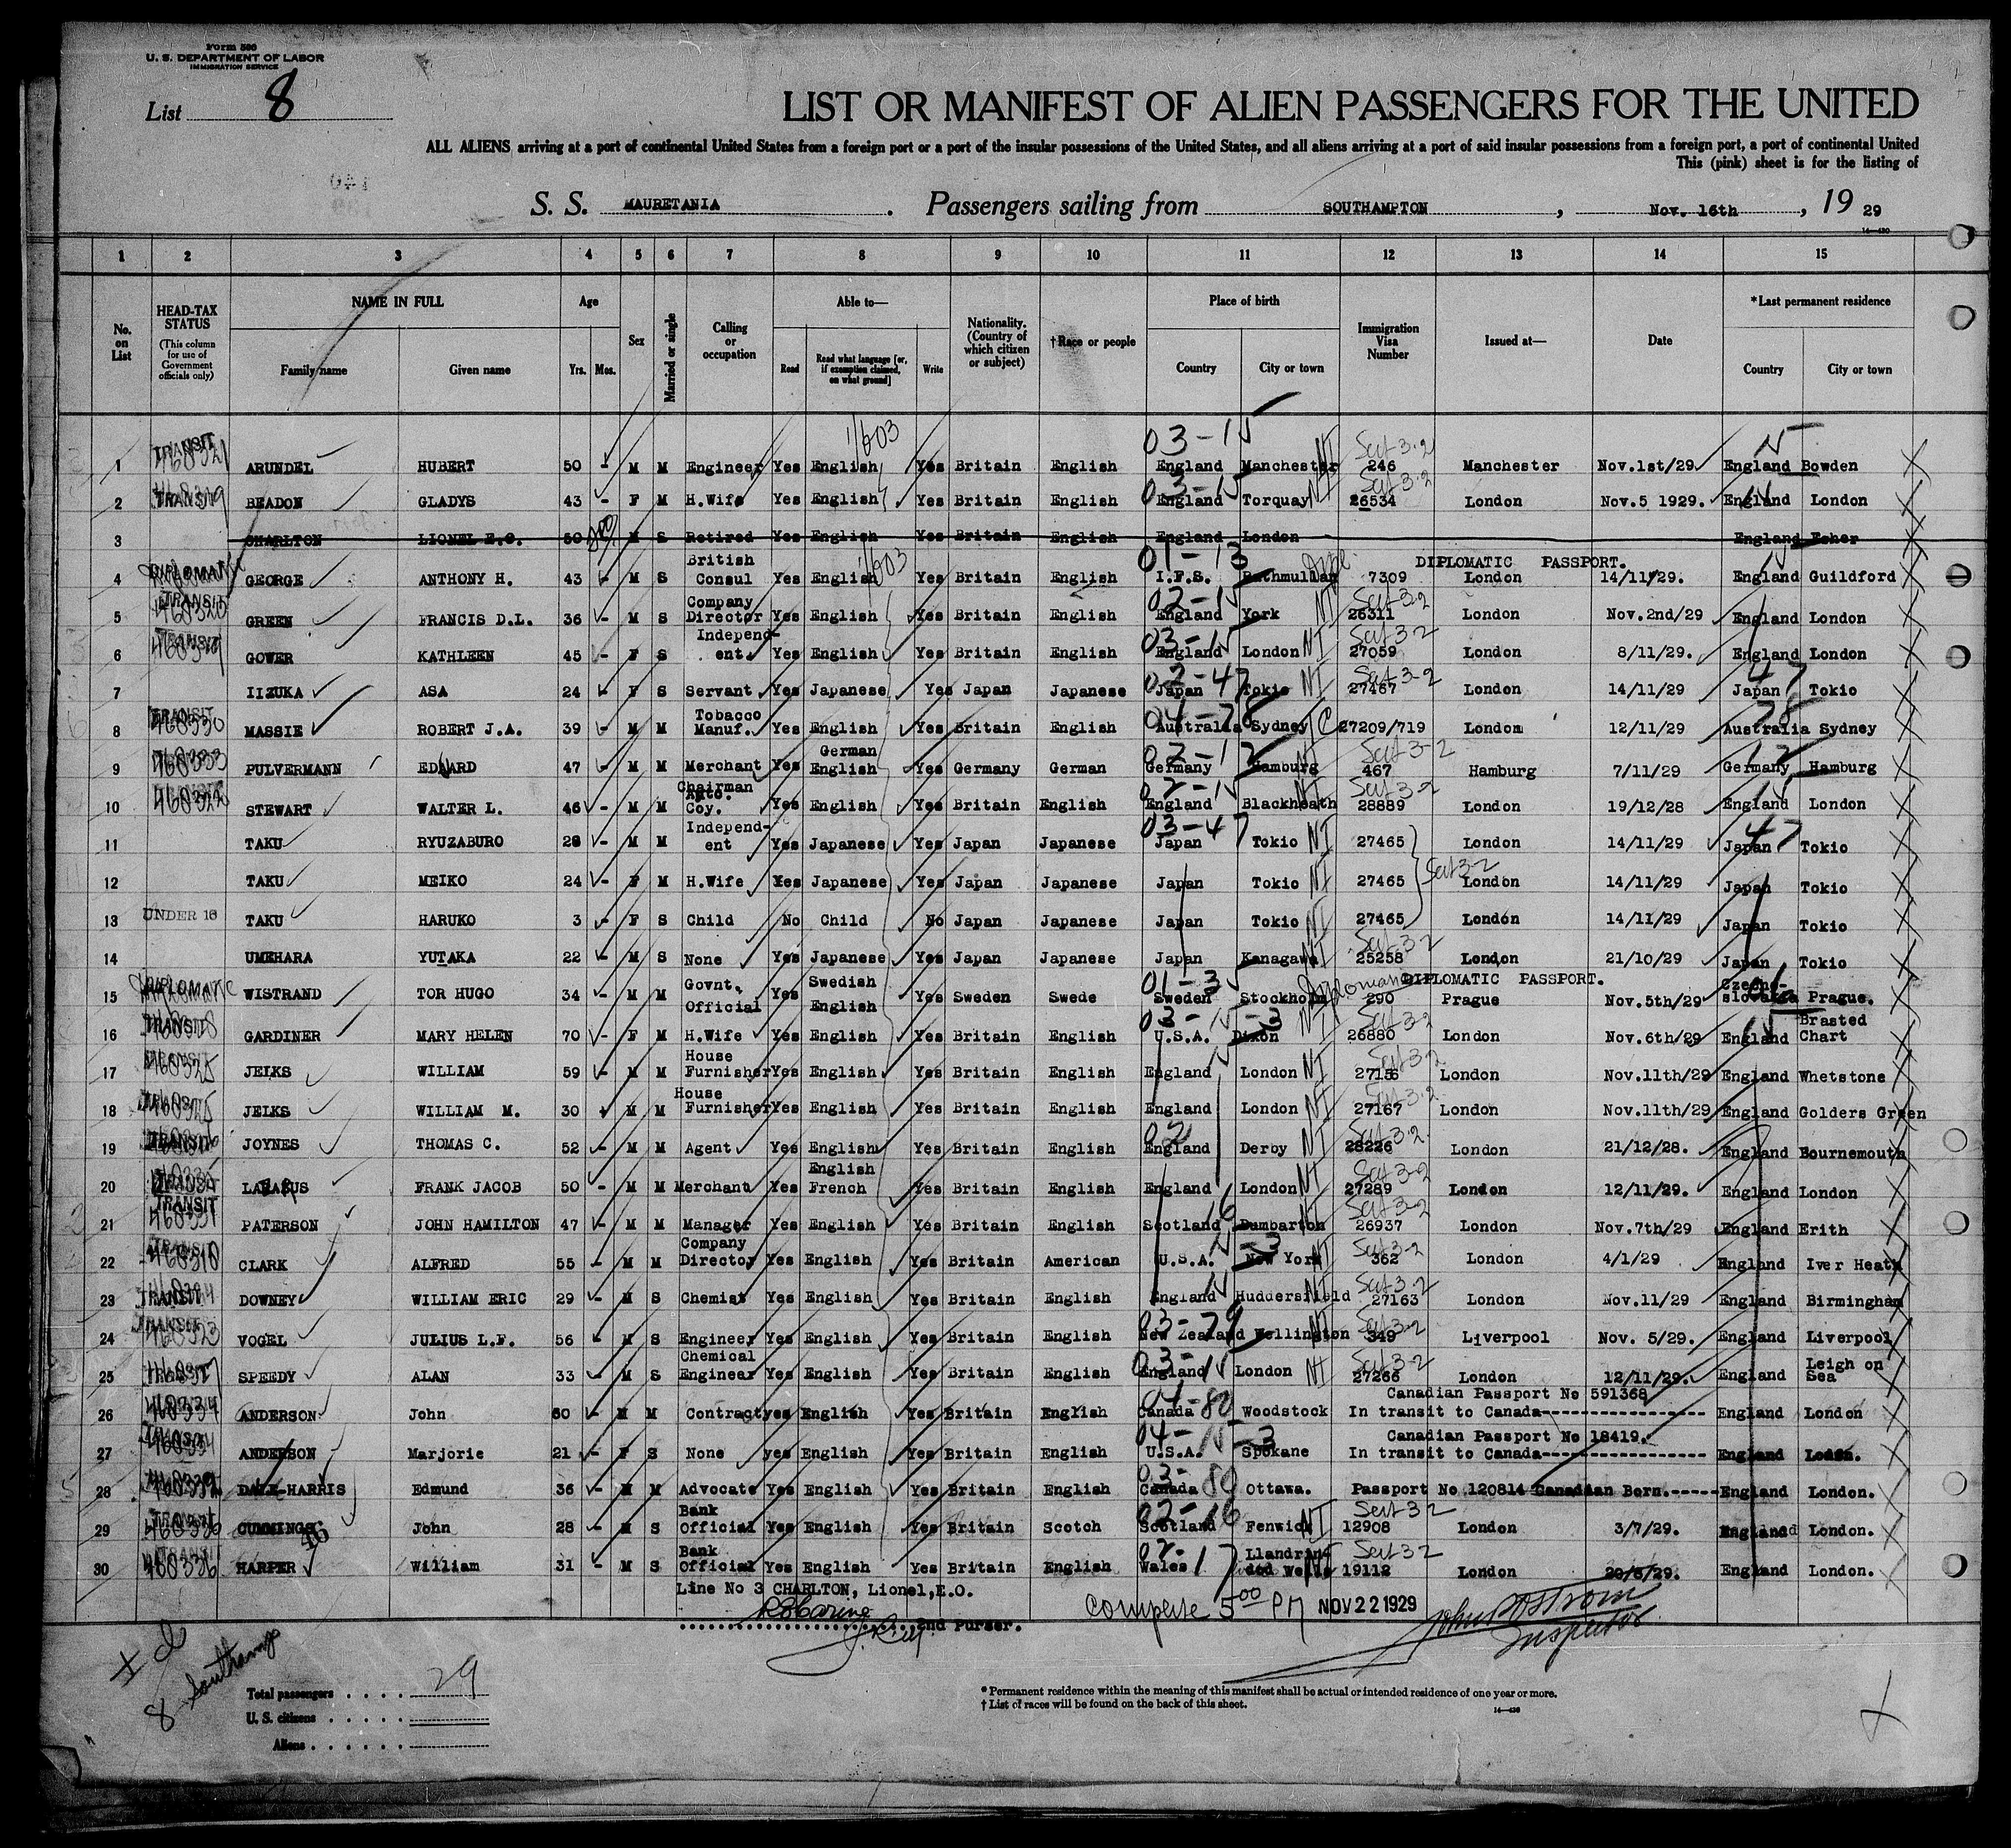 Form 500
U. S. DEPARTMENT OF LABOR
IMMIGRATION SERVICE
List 8
LIST OR MANIFEST OF ALIEN PASSENGERS FOR THE UNITED
ALL ALIENS arriving at a port of continental United States from a foreign port or a port of the insular possessions of the United States, and all aliens arriving at a port of said insular possessions from a foreign port, a port of continental United
This (pink) sheet is for the listing of
S. S. MAURETANIA. Passengers sailing from SOUTHAMPTON, Nov. 16th, 19 29
1 2 3 4 5 6 7 8 9 10 11 12 13 14 15
No. on List
HEAD-TAX STATUS (This column for use of Government officials only)
NAME IN FULL Family name Given name
Age Yrs. Mos.
Sex
Married or single
Calling or occupation
Able to— Read Read what language [or, if exemption claimed, on what ground] Write
Nationality. (Country of which citizen or subject)
†Race or people
Place of birth Country City or town
Immigration Visa Number
Issued at—
Date
*Last permanent residence Country City or town
1 TRANSIT ARUNDEL HUBERT 50 - M M Engineer Yes English Yes Britain English England Manchester 246 Manchester Nov.1st/29 England Bowden
2 TRANSIT BEADON GLADYS 43 - F M H.Wife Yes English Yes Britain English England Torquay 26534 London Nov.5 1929. England London
3 CHARLTON LIONEL E.O. 50 M S Retired Yes English Yes Britain English England London England Esher
4 DIPLOMATIC GEORGE ANTHONY H. 43 - M S British Consul Yes English Yes Britain English I.F.S. Rathmullan 7309 DIPLOMATIC PASSPORT. London 14/11/29. England Guildford
5 TRANSIT GREEN FRANCIS D.L. 36 - M S Company Director Yes English Yes Britain English England York 26311 London Nov.2nd/29 England London
6 TRANSIT GOWER KATHLEEN 45 - F S Independ-ent. Yes English Yes Britain English England London 27059 London 8/11/29. England London
7 IIZUKA ASA 24 - F S Servant Yes Japanese Yes Japan Japanese Japan Tokio 27467 London 14/11/29 Japan Tokio
8 TRANSIT MASSIE ROBERT J.A. 39 - M M Tobacco Manuf. Yes English Yes Britain English Australia Sydney 27209/719 London 12/11/29 Australia Sydney
9 PULVERMANN EDWARD 47 - M M Merchant Yes German English Yes Germany German Germany Hamburg 467 Hamburg 7/11/29 Germany Hamburg
10 STEWART WALTER L. 46 - M M Chairman Auto. Coy. Yes English Yes Britain English England Blackheath 28889 London 19/12/28 England London
11 TAKU RYUZABURO 28 - M M Independ-ent Yes Japanese Yes Japan Japanese Japan Tokio 27465 London 14/11/29 Japan Tokio
12 TAKU MEIKO 24 - F M H.Wife Yes Japanese Yes Japan Japanese Japan Tokio 27465 London 14/11/29 Japan Tokio
13 UNDER 16 TAKU HARUKO 3 - F S Child No Child No Japan Japanese Japan Tokio 27465 London 14/11/29 Japan Tokio
14 UMEHARA YUTAKA 22 - M S None Yes Japanese Yes Japan Japanese Japan Kanagawa 25258 London 21/10/29 Japan Tokio
15 DIPLOMATIC WISTRAND TOR HUGO 34 - M M Govnt. Official Yes Swedish English Yes Sweden Swede Sweden Stockholm 290 DIPLOMATIC PASSPORT. Prague Nov.5th/29 Czecho-slovakia Prague.
16 TRANSIT GARDINER MARY HELEN 70 - F M H.Wife Yes English Yes Britain English U.S.A. Dixon 26880 London Nov.6th/29 England Brasted Chart
17 JELKS WILLIAM 59 - M M House Furnisher Yes English Yes Britain English England London 27156 London Nov.11th/29 England Whetstone
18 JELKS WILLIAM M. 30 - M M House Furnisher Yes English Yes Britain English England London 27167 London Nov.11th/29 England Golders Green
19 TRANSIT JOYNES THOMAS C. 52 - M M Agent Yes English Yes Britain English England Derby 28226 London 21/12/28. England Bournemouth
20 LAZARUS FRANK JACOB 50 - M M Merchant Yes English French Yes Britain English England London 27289 London 12/11/29. England London
21 TRANSIT PATERSON JOHN HAMILTON 47 - M M Manager Yes English Yes Britain English Scotland Dumbarton 26937 London Nov.7th/29 England Erith
22 TRANSIT CLARK ALFRED 55 - M M Company Director Yes English Yes Britain American U.S.A. New York 362 London 4/1/29 England Iver Heath
23 TRANSIT DOWNEY WILLIAM ERIC 29 - M S Chemist Yes English Yes Britain English England Huddersfield 27163 London Nov.11/29 England Birmingham
24 TRANSIT VOGEL JULIUS L.F. 56 - M S Engineer Yes English Yes Britain English New Zealand Wellington 349 Liverpool Nov. 5/29. England Liverpool
25 SPEEDY ALAN 33 - M S Chemical Engineer Yes English Yes Britain English England London 27266 London 12/11/29. England Leigh on Sea
26 ANDERSON John 60 - M M Contract yes English Yes Britain English Canada Woodstock Canadian Passport No 591368 In transit to Canada England London
27 ANDERSON Marjorie 21 - F S None yes English Yes Britain English U.S.A. Spokane Canadian Passport No 18419. In transit to Canada England London.
28 DALE-HARRIS Edmund 36 - M M Advocate Yes English Yes Britain English Canada Ottawa. Passport No 120814 Canadian Born. England London.
29 CUMMINGS John 28 - M S Bank Official Yes English Yes Britain Scotch Scotland Fenwick 12908 London 3/7/29. England London.
30 TRANSIT HARPER William 31 - M S Bank Official Yes English Yes Britain English Wales Llandrindod Wells 19112 London 20/8/29. England London.
Line No 3 CHARLTON, Lionel,E.O.
2nd Purser.
Complete 5 00 PM NOV 22 1929
Inspector
8 Southamp
Total passengers . . . . 29
U. S. citizens . . . . .
Aliens . . . . . .
* Permanent residence within the meaning of this manifest shall be actual or intended residence of one year or more.
† List of races will be found on the back of this sheet.